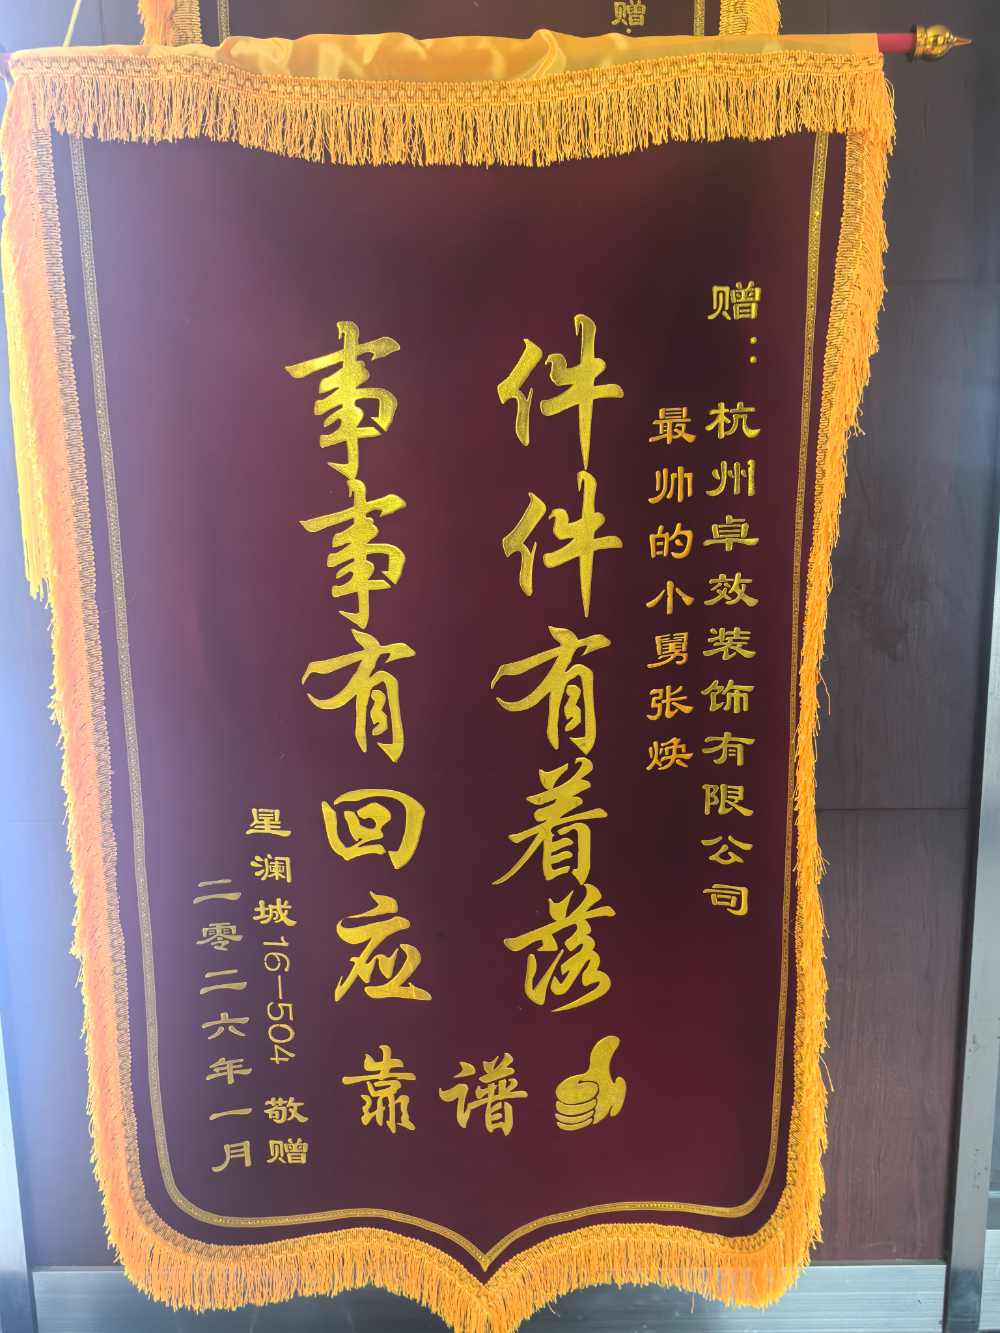 赠
赠：杭州卓效装饰有限公司
最帅的小舅张焕
件件有着落
事事有回应
靠谱
星澜城16-504 敬赠
二零二六年一月